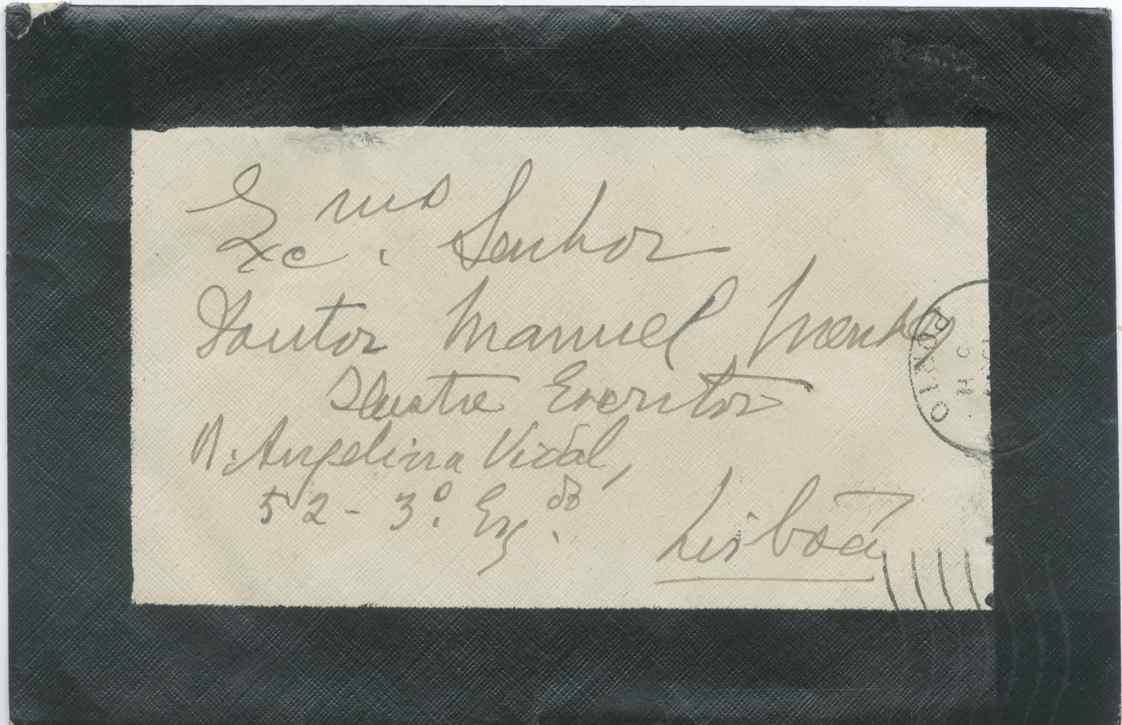 Exc.mo Senhor
Doutor Manuel Mendes
Ilustre Escritor
R. Angelina Vidal,
52-3.º Esq.do
Lisboa